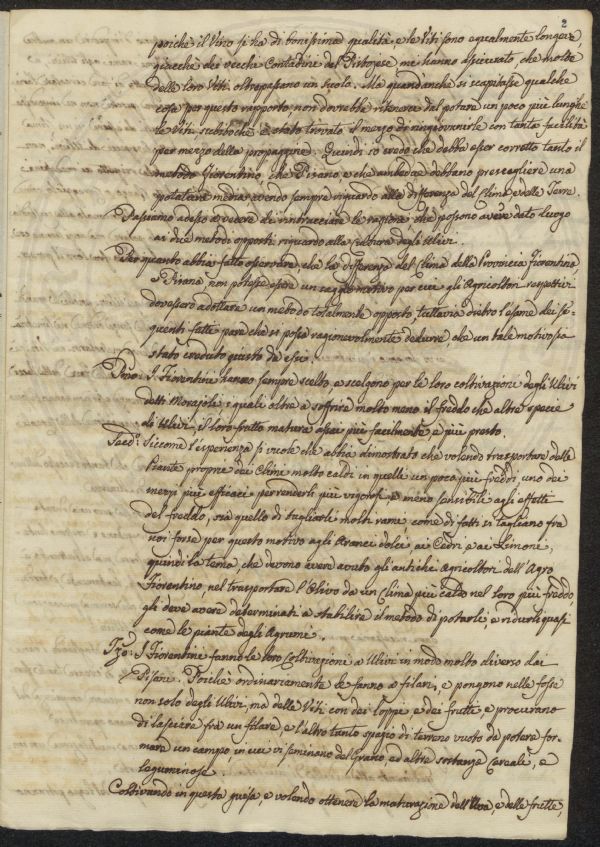 2
poichè il Vino si ha di bonissima qualità, e le Viti sono egualmente longeve,
giacchè dei vecchi Contadini del Pistojese mi hanno assicurato, che molte
delle loro Viti oltrepassano un secolo. Ma quand'anche si scapitasse qualche
cosa per questo rapporto, non dovrebbe ritenere dal potare un poco più lunghe
le Viti subitochè è stato trovato il mezzo di ringiovanirle con tanta facilità
per mezzo della propaggine. Quindi io credo che debba esser corretto tanto il
metodo Fiorentino, che Pisano, e che ambedue debbano prescegliere una
potatura media avendo sempre riguardo alla differenza del Clima, e delle Terre.
Passiamo adesso a vedere di rintracciare le ragioni, che possono avere dato luogo
ai due metodi opposti riguardo alla cultura degli Ulivi.
Per quanto abbia fatto osservare, che la differenza del Clima della Provincia Fiorentina,
e Pisana non potesse essere un saggio motivo per cui gli Agricoltori respettivi
dovessero adottare un metodo totalmente opposto, tuttavia dietro l'esame dei se-
guenti fatti pare che si possa ragionevolmente dedurre, che un tale motivo sia
stato creduto giusto da essi.
Pmo: I Fiorentini hanno sempre scelto, e scelgono per le loro coltivazioni degli Ulivi
detti Morajoli, i quali oltre a soffrire molto meno il freddo che altre specie
di Ulivi, il loro frutto matura assai più facilmente, e più presto.
Secdo: Siccome l'esperienza si vuole che abbia dimostrato che volendo trasportare delle
Piante proprie dei Climi molto caldi in quelli un poco più freddi, uno dei
mezzi più efficaci per renderli più vigorosi, e meno sensibili agli effetti
del freddo, sia quello di tagliarli molti rami come di fatti si tagliano fra
noi forse per questo motivo agli Aranci dolci, ai Cedri, e ai Limoni;
quindi la tema, che devono avere avuto gli antichi Agricoltori dell'Agro
Fiorentino, nel trasportare l'Olivo da un Clima più caldo nel loro più freddo,
gli deve avere determinati a stabilire il metodo di potarli, e ridurli quasi
come le piante degli Agrumi.
Tzo: I Fiorentini fanno le loro Coltivazioni a Ulivi in modo molto diverso dai
Pisani. Poichè ordinariamente le fanno a filari, e pongono nelle fosse
non solo degli Ulivi, ma delle Viti con dei loppi, e dei frutti, e procurano
di lasciare fra un filare, e l'altro tanto spazio di terreno vuoto da potere for-
mare un campo, in cui vi seminano del Grano, ed altre sostanze cereali, e
leguminose.
Coltivando in questa guisa, e volendo ottenere la maturazione dell'Uva, e delle frutte,